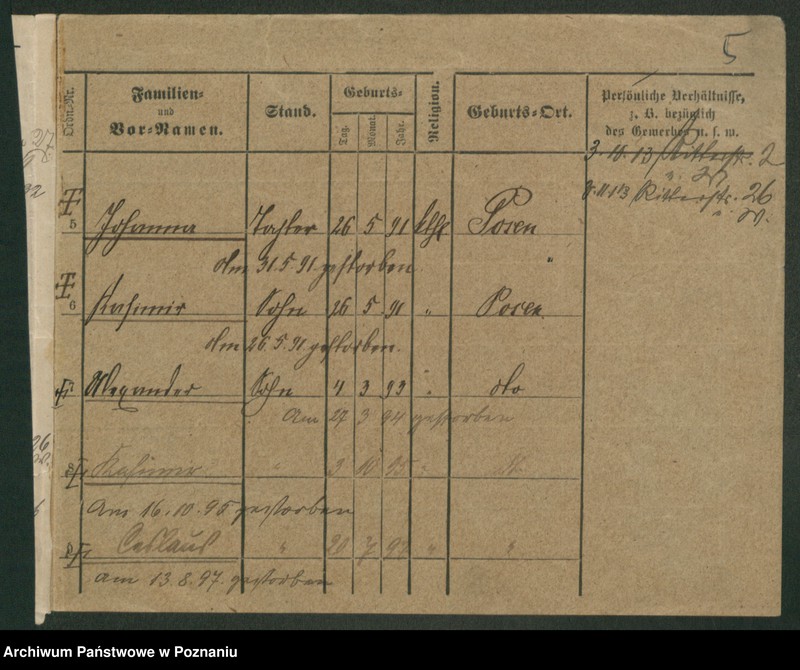 5
Ordn.-Nr.
Familien-
und
Vor-Namen.
Stand.
Geburts-
Tag.
Monat.
Jahr.
Religion.
Geburts-Ort.
Persönliche Verhältnisse,
z. B. bezüglich
des Gewerbes u. s. w.
3.10.13 Ritterstr. 2
3.11.13 Ritterstr. 26
5 Johanna Tochter 26 5 91 kth Posen
Am 31.5.91 gestorben
6 Kasimir Sohn 26 5 91 " Posen
Am 26.5.91 gestorben.
Alexander Sohn 4 3 93 " dto
Am 27 3 94 gestorben
Kasimir " 3 10 95 "
Am 16.10.95 gestorben
Ceslaus " 20 7 97 " "
Am 13.8.97. gestorben
Archiwum Państwowe w Poznaniu